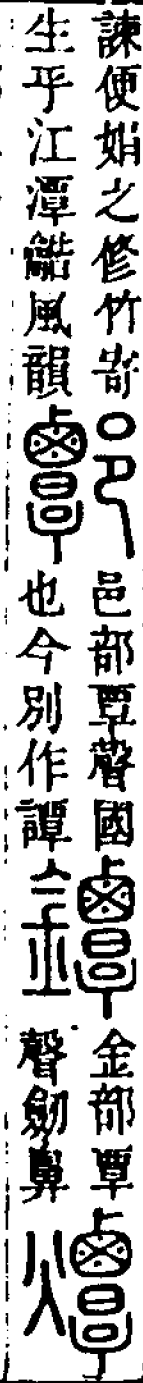 諫便娟之修竹寄
生乎江潭諧風韻
𨝸
邑部覃聲國
也今別作譚
鐔
金部覃
聲劒鼻
燂